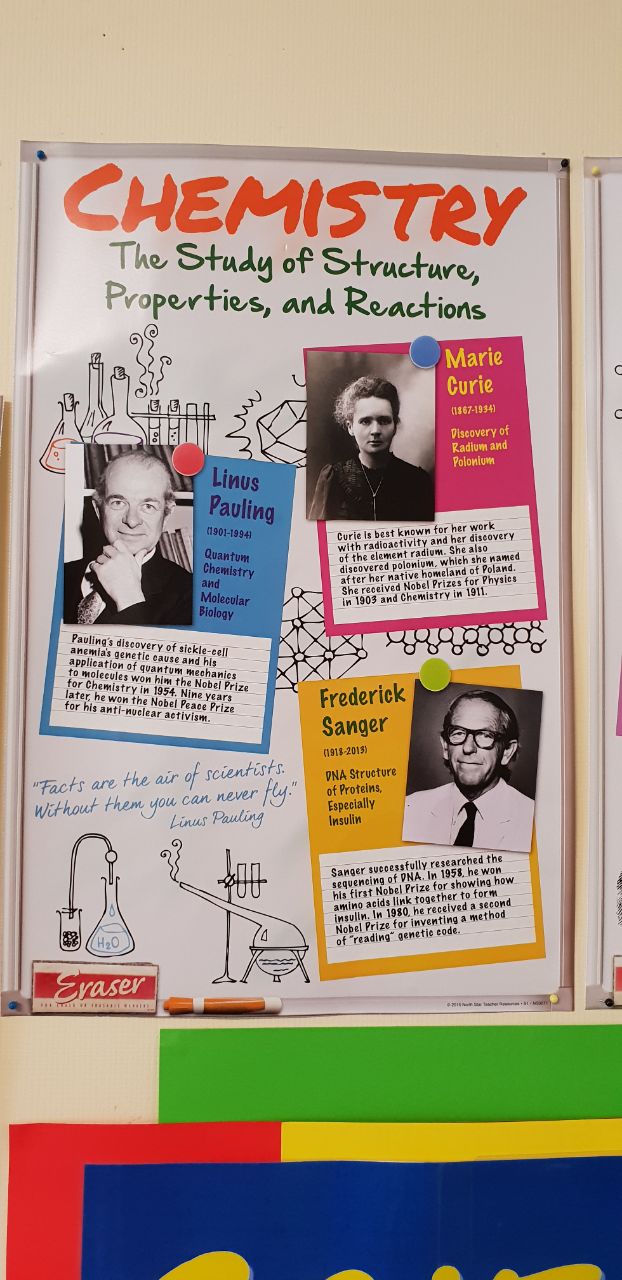 CHEMISTRY
The Study of Structure,
Properties, and Reactions
Marie
Curie
(1867-1934)
Discovery of
Radium and
Polonium
Curie is best known for her work
with radioactivity and her discovery
of the element radium. She also
discovered polonium, which she named
after her native homeland of Poland.
She received Nobel Prizes for Physics
in 1903 and Chemistry in 1911.
Linus
Pauling
(1901-1994)
Quantum
Chemistry
and
Molecular
Biology
Pauling's discovery of sickle-cell
anemia's genetic cause and his
application of quantum mechanics
to molecules won him the Nobel Prize
for Chemistry in 1954. Nine years
later, he won the Nobel Peace Prize
for his anti-nuclear activism.
Frederick
Sanger
(1918-2013)
DNA Structure
of Proteins,
Especially
Insulin
Sanger successfully researched the
sequencing of DNA. In 1958, he won
his first Nobel Prize for showing how
amino acids link together to form
insulin. In 1980, he received a second
Nobel Prize for inventing a method
of "reading" genetic code.
"Facts are the air of scientists.
Without them you can never fly."
Linus Pauling
H₂O
Eraser
© 2015 North Star Teacher Resources